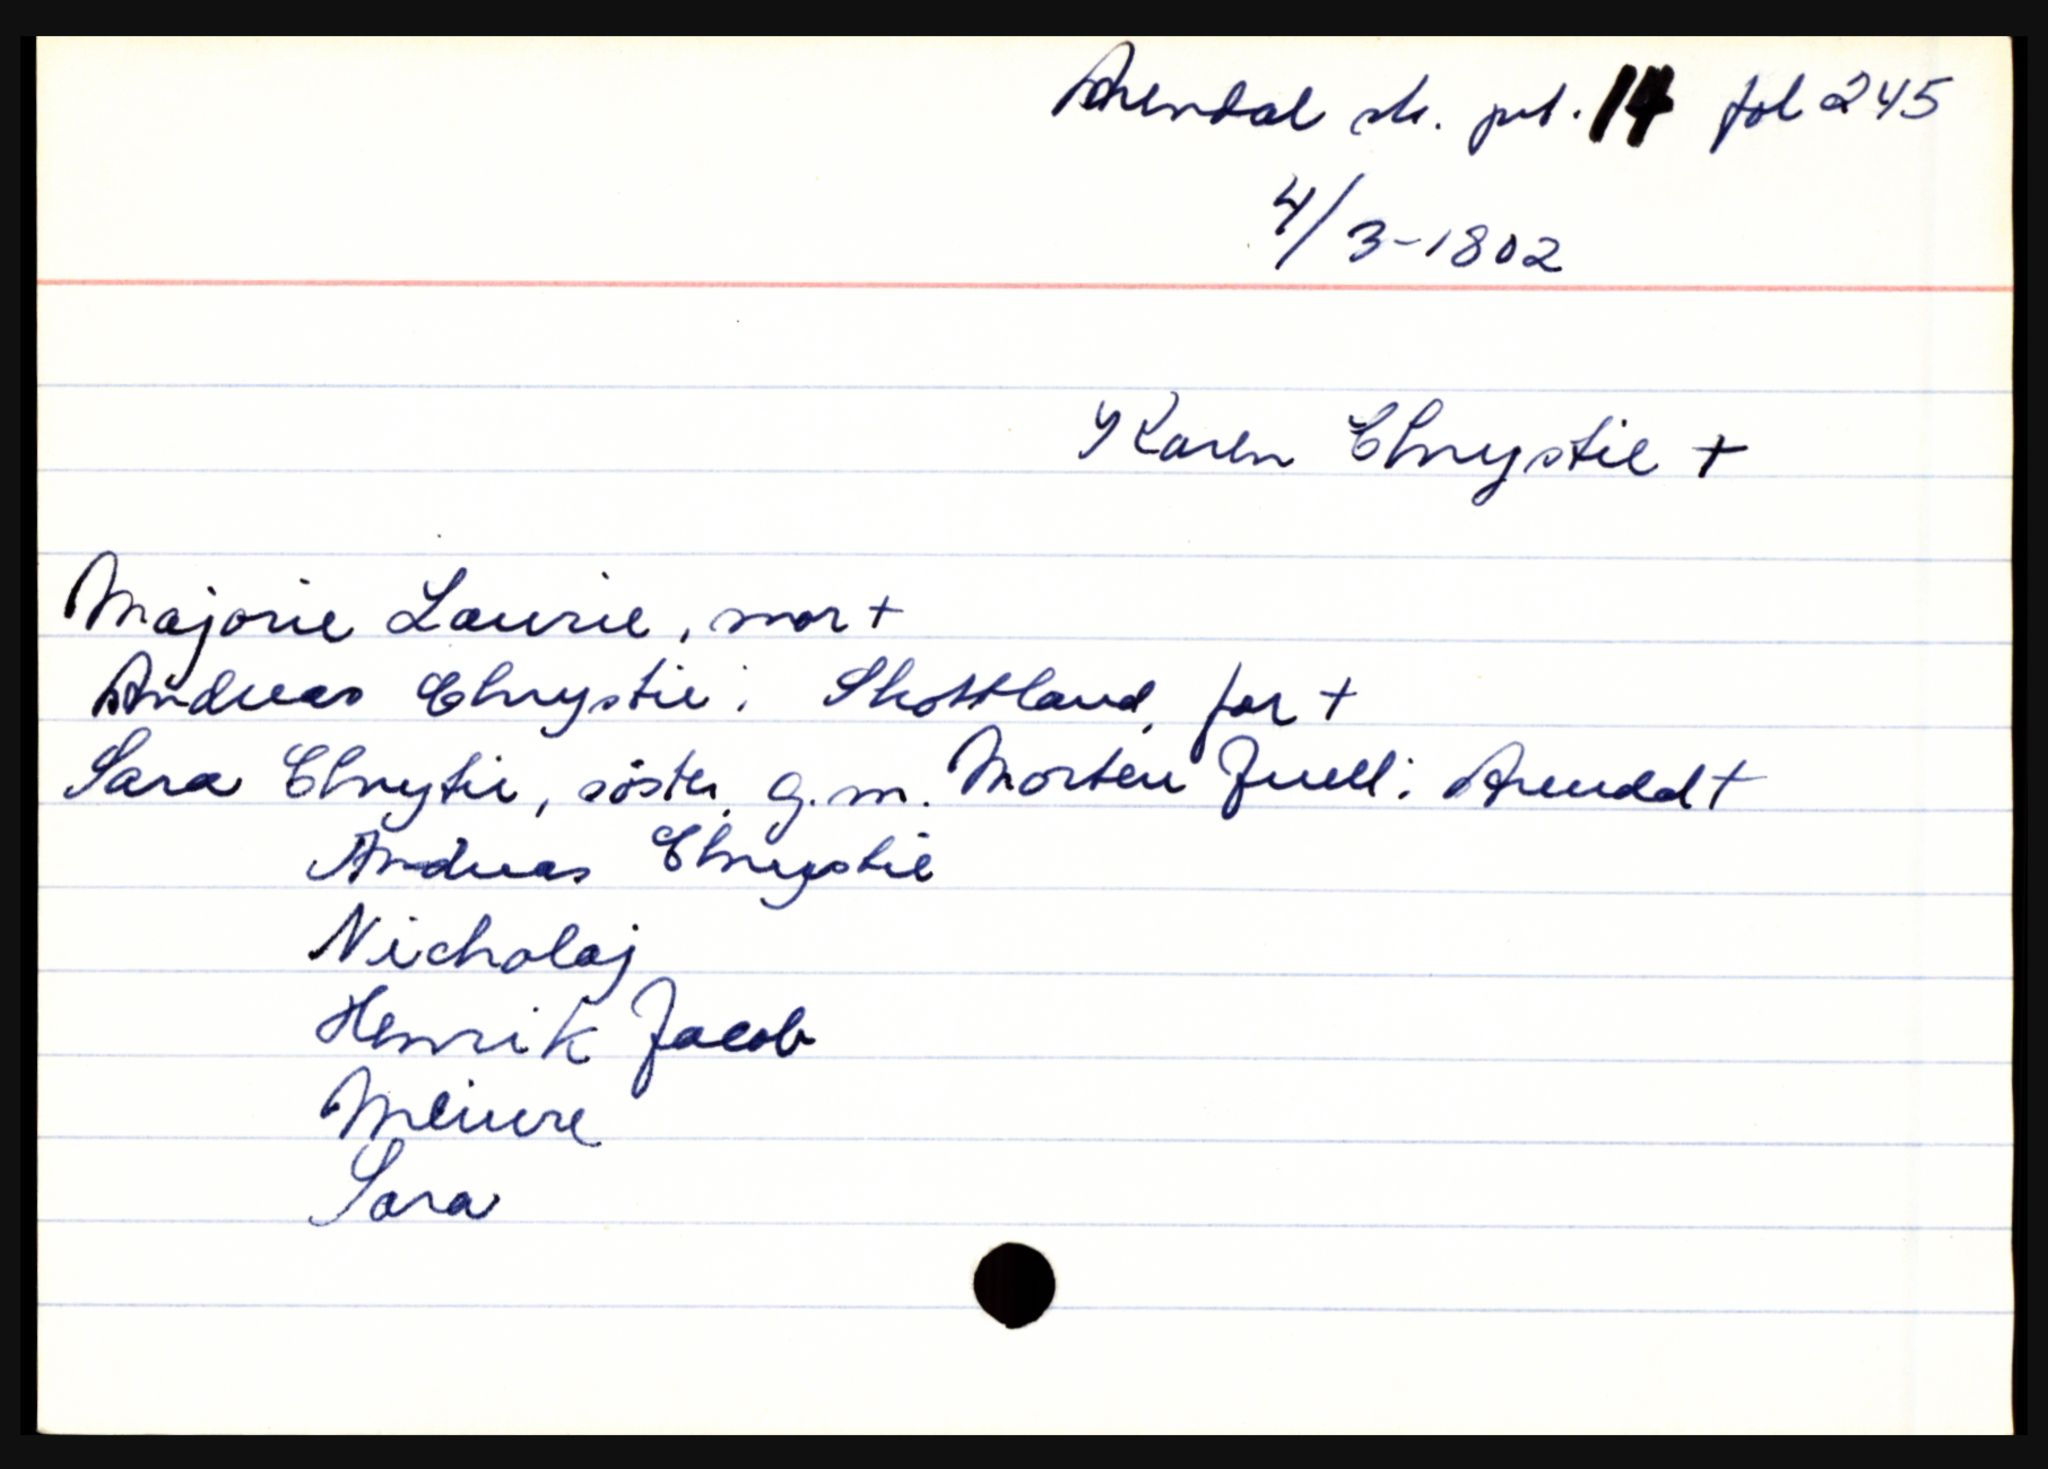 Arendal sk. prt. 14 fol 245
4/3-1802
Karen Chrystie +
Majorie Laurie, mor +
Andreas Chrystie i Skottland, far +
Sara Chrytie, söster, g.m. Morten Juell i Arendal +
Andreas Chrystie
Nicholaj
Henrik Jacob
Sara